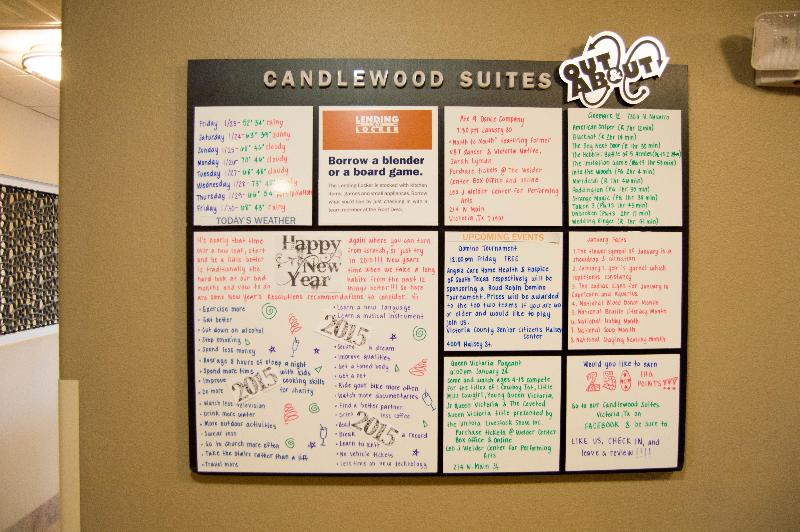 CANDLEWOOD SUITES
OUT
& ABOUT!
Friday 1/23 - 52° 34° rainy
Saturday 1/24 - 63° 39° sunny
Sunday 1/25 - 66° 46° cloudy
Monday 1/26 - 70° 46° cloudy
Tuesday 1/27 - 66° 48° cloudy
Wednesday 1/28 - 73°
Thursday 1/29 - 66° 54° precipitation
Friday 1/30 - 68° 43° rainy
TODAY'S WEATHER
LENDING
LOCKER
Borrow a blender
or a board game.
The Lending Locker is stocked with kitchen
items, games and small appliances. Borrow
what you'd like by just checking in with a
team member at the Front Desk.
7:30 pm January 30
"Mouth to Mouth" featuring former
VBT dancer & Victoria Native,
Sarah
Purchase tickets @ The Welder
Center Box Office and Online
Leo J Welder Center for Performing
Arts
214 N. Main
Victoria, TX 77901
Cinemark 12 7806 N Navarro
American Sniper (R 2hr 12min)
Blackhat (R 2hr 13min)
The Boy Next Door (R 1hr 30 min)
The Hobbit: Battle of 5 Armies
The Imitation Game
Into the Woods (PG 2hr 4 min)
Mortdecai (R 1hr 46min)
Paddington (PG 1hr 35 min)
Strange Magic (PG 1hr 39 min)
Taken 3
Unbroken
Wedding Ringer (R 1hr 41 min)
It's nearly that time
over a new leaf, start
and be a little better
is traditionally the
hard look at our bad
months and vow to do
Happy
New
Year
again where you can turn
from scratch, or just try
in 2015!!! New years
time when we take a long
habits from the past 12
things better!!! So here
are some New Year's Resolutions recommendations to consider.
• Exercise more
• Eat better
• Cut down on alcohol
• Stop smoking
• Spend less money
• Average 8 hours of sleep a night
• Spend more time with kids
• Improve cooking skills
• Do more for charity
• Watch less television
• Drink more water
• More outdoor activities
• Swear less
• Go to church more often
• Take the stairs rather than a lift
• Travel more
2015
• Learn a new language
• Learn a musical instrument
2015
a dream
• Improve qualities
• Get a toned body
• Get a pet
• Ride your bike more often
• Watch more documentaries
• Find a better partner
• Drink less coffee
2015
• Break a record
• Learn to knit
• No vehicle tickets
• Less time on new technology
UPCOMING EVENTS
Domino Tournament
12:00 pm Friday FREE
Angels Care Home Health & Hospice
of South Texas respectively will be
sponsoring a Round Robin Domino
Tournament. Prizes will be awarded
to the top two teams. If you are 60
or older and would like to play
join us.
Victoria County Senior Citizens
Center
4009 Halsey St
January Facts
1. The flower symbol of January is a
snowdrop & carnation
2. January's gem is garnet which
represents constancy
3. The zodiac signs for January is
Capricorn and Aquarius
4. National Blood Donor Month
5. National Braille Literacy Month
6. National Hobby Month
7. National Soup Month
8. National Staying Healthy Month
Queen Victoria Pageant
6:00pm January 24
Come and watch ages 4-13 compete
for the titles of: Cowboy Tot, Little
Miss Cowgirl, Young Queen Victoria,
Jr Queen Victoria & The Coveted
Queen Victoria title presented by
the Victoria Livestock Show Inc.
Purchase tickets @ Welder Center
Box Office & Online
Leo J Welder Center for Performing
Arts
214 N. Main St
Would you like to earn
250 IHG
POINTS???
Go to our Candlewood Suites
Victoria, TX on
FACEBOOK & be sure to
LIKE US, CHECK IN, and
leave a review!!!!